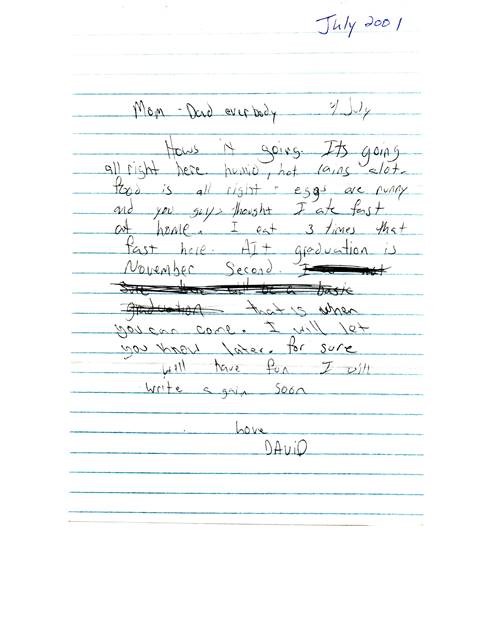 July 2001
Mom - Dad everbody July
Hows it going. Its going
all right here humid, hot rains alot.
food is all right - eggs are runny
and you guys thought I ate fast
at home. I eat 3 times that
fast here. AIT graduation is
November Second.
graduation that is when
you can come. I will let
you know later. for sure
will have fun I will
write a gain soon
Love
DAViD